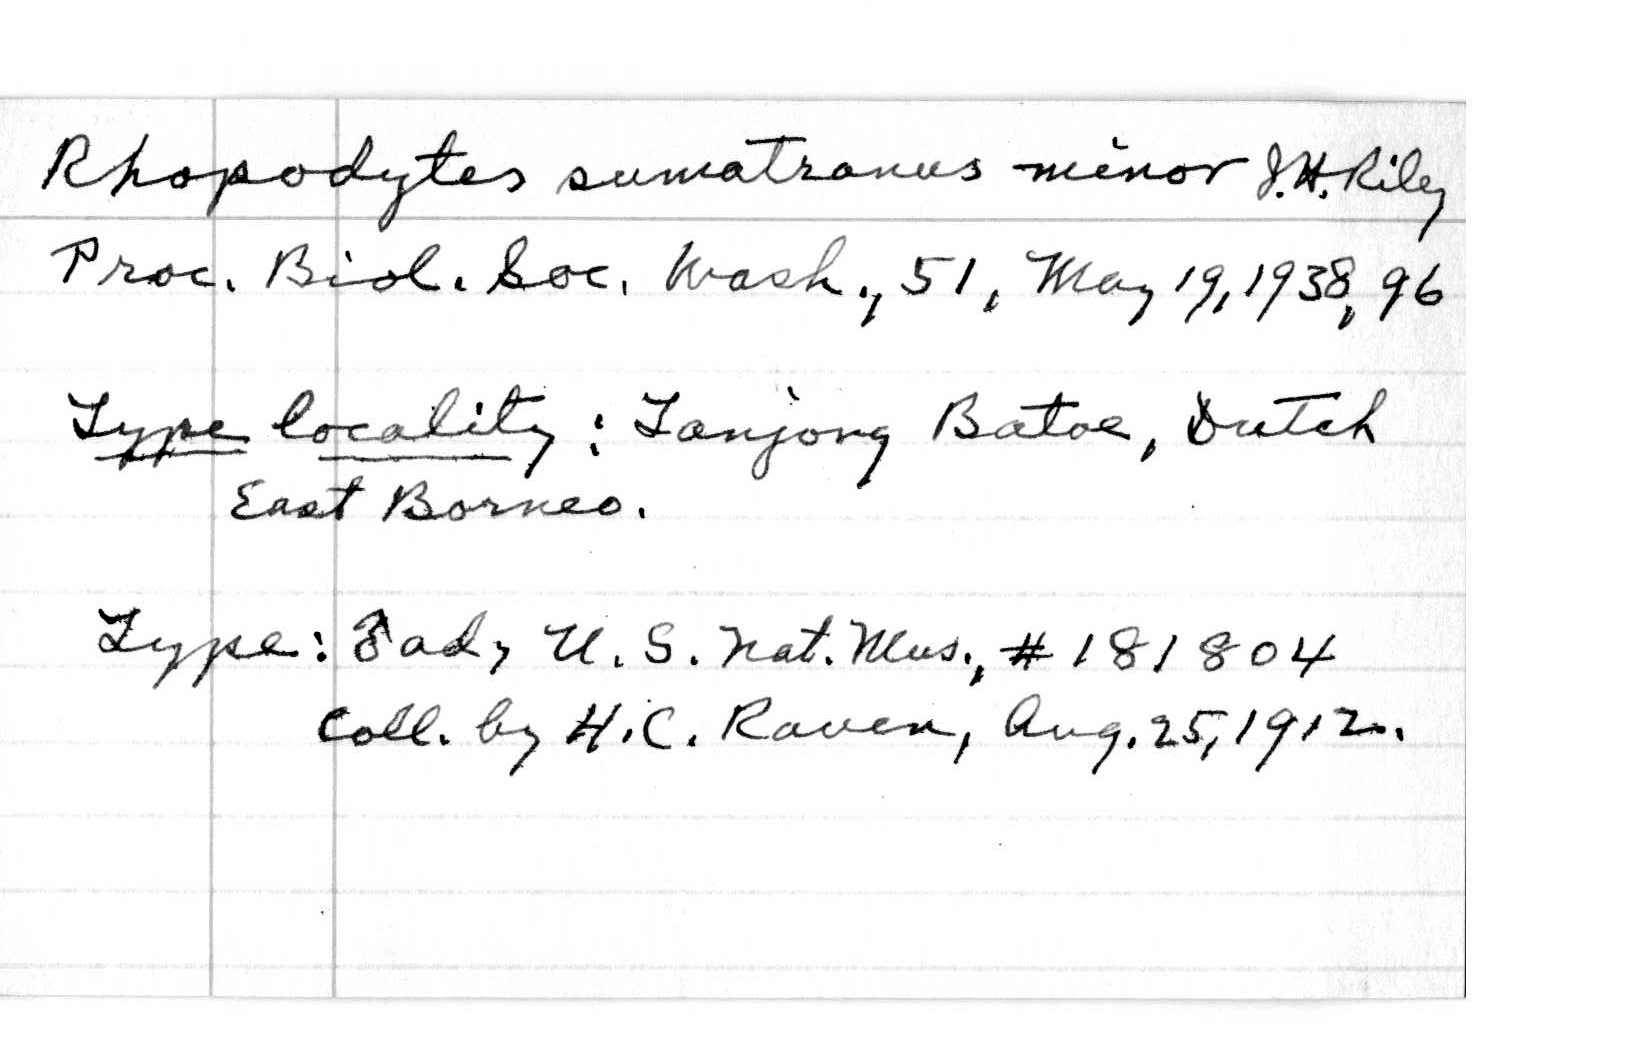 Rhopodytes sumatranus minor J.H. Riley
Proc. Biol. Soc. Wash., 51, May 19, 1938, 96
Type locality: Tanjong Batoe, Dutch
East Borneo.
Type: ad, U.S. Nat. Mus., #181804
Coll. by H.C. Raven, Aug. 25, 1912.